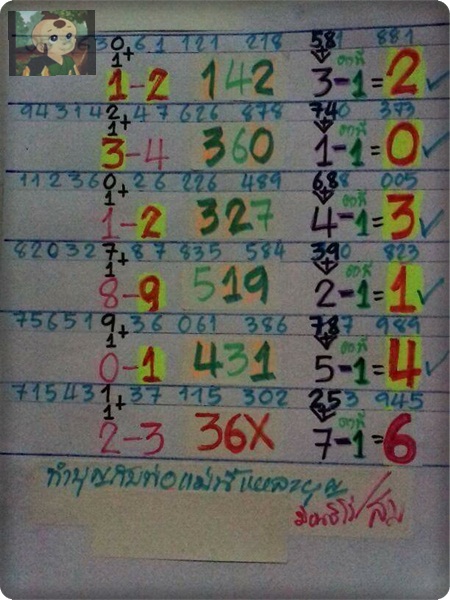 530 61 121 218 581 881
1+
1-2 142 3-1=2
943142 47 626 878 740 373
1+
3-4 360 1-1=0
112360 26 226 489 688 005
1+
1-2 327 4-1=3
820327 87 835 584 390 823
1+
8-9 519 2-1=1
756519 36 061 386 787 989
1+
0-1 431 5-1=4
715431 37 115 302 253 945
1+
2-3 36X 7-1=6
ทำบุญกับพ่อแม่